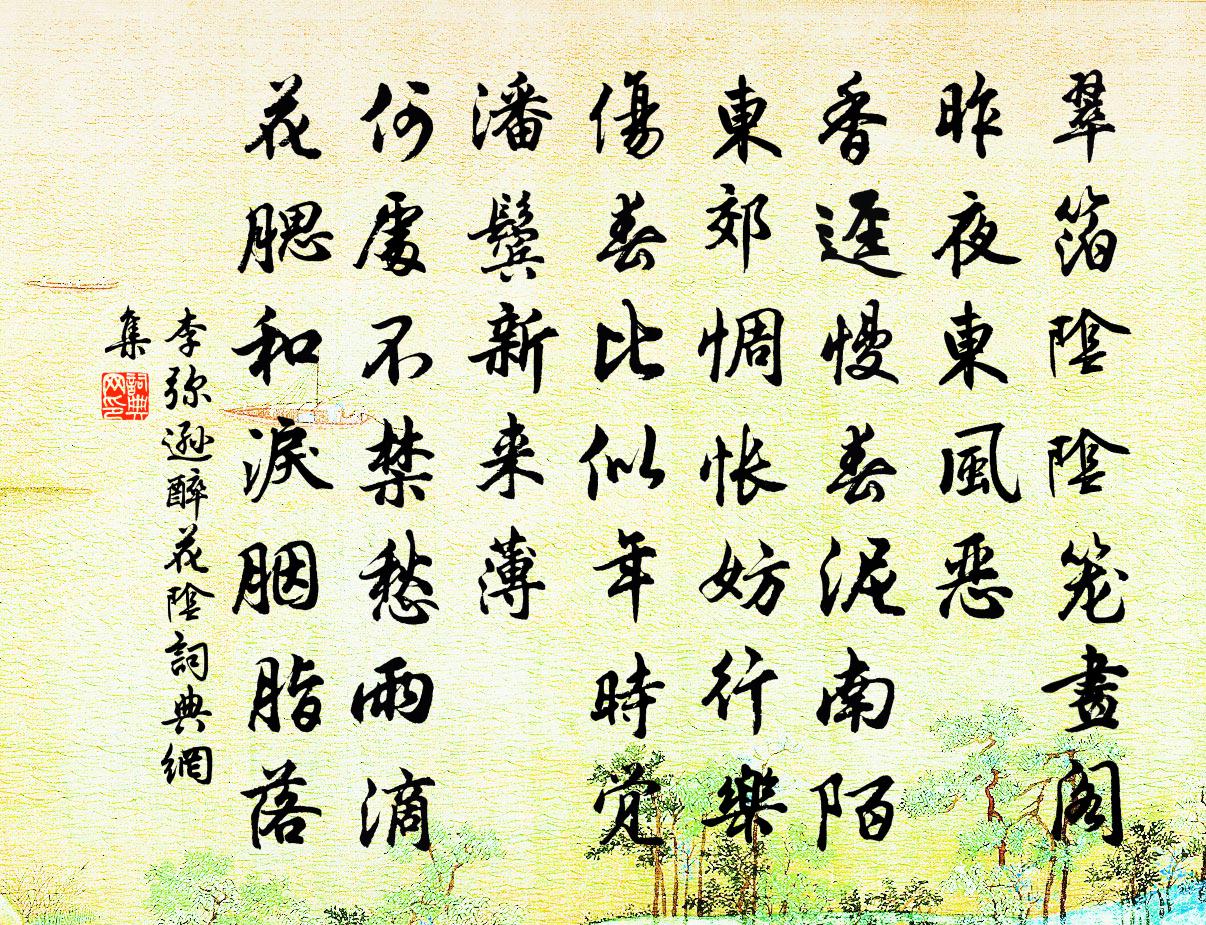 翠箔陰陰笼畫阁
昨夜東風恶
香逕慢春泥南陌
東郊惆怅妨行樂
傷春比似年時觉
潘鬓新来薄
何處不禁愁雨滴
花腮和淚胭脂落
李弥遜醉花陰詞典網
集
詞典网印